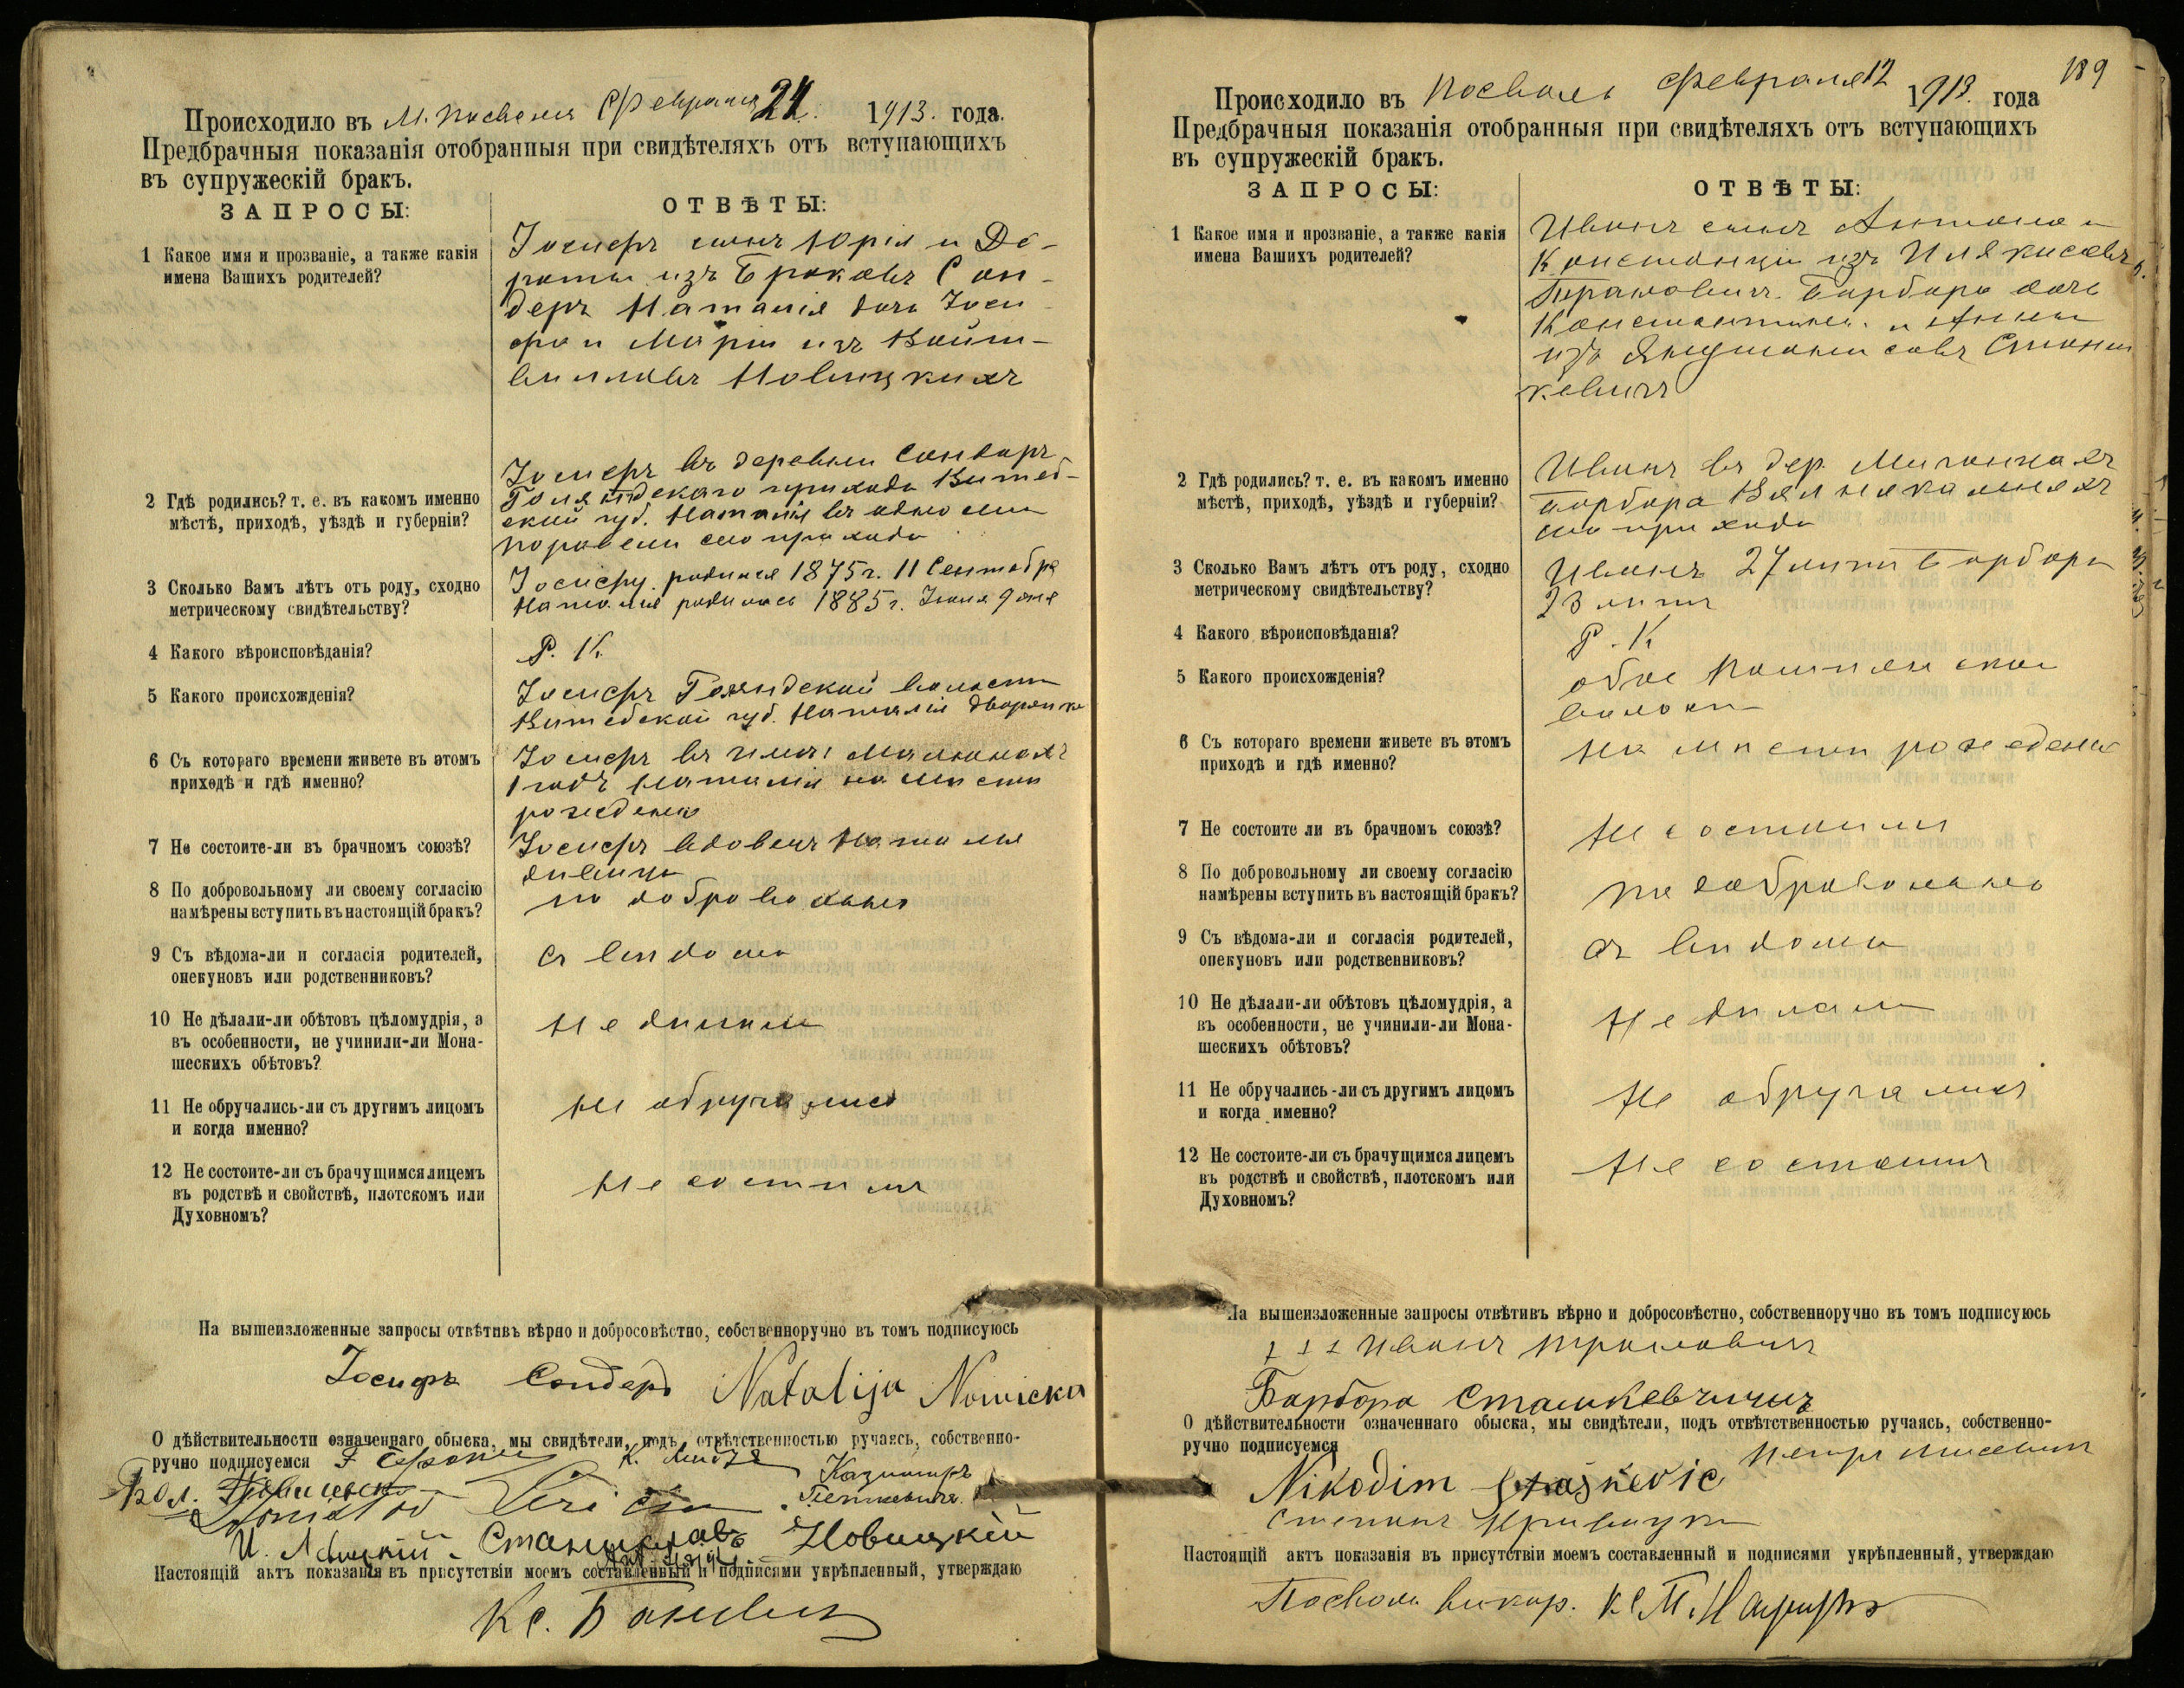 Происходило въ М. Посволя Февраля 24. 1913. года.
Предбрачныя показанія отобранныя при свидѣтеляхъ отъ вступающихъ
въ супружескій бракъ.
ЗАПРОСЫ:
ОТВѢТЫ:
1 Какое имя и прозваніе, а также какія
имена Вашихъ родителей?
Іосифъ сынъ Юрія и До-
роты изъ Броковъ Сон-
деръ Наталія дочь Іоси
фа и Маріи изъ Войт-
Новицкихъ
2 Гдѣ родились? т. е. въ какомъ именно
мѣстѣ, приходѣ, уѣздѣ и губерніи?
Іосифъ въ деревни Сондоръ
прихода Витеб-
ской губ. Наталія въ
сего прихода
3 Сколько Вамъ лѣтъ отъ роду, сходно
метрическому свидѣтельству?
Іосифъ родился 1875 г. 11 Сентября
Наталія родилась 1885 г. Іюля 9 дня
4 Какого вѣроисповѣданія?
Р. К.
5 Какого происхожденія?
Іосифъ волости
Витебской губ. Наталія дворянка
6 Съ котораго времени живете въ этомъ
приходѣ и гдѣ именно?
Іосифъ въ
1 годъ Наталія на мѣсти
рожденія
7 Не состоите-ли въ брачномъ союзѣ?
Іосифъ вдовецъ Наталія
дѣвица
8 По добровольному ли своему согласію
намѣрены вступить въ настоящій бракъ?
по добровольно
9 Съ вѣдома-ли и согласія родителей,
опекуновъ или родственниковъ?
съ вѣдома
10 Не дѣлали-ли обѣтовъ цѣломудрія, а
въ особенности, не учинили-ли Мона-
шескихъ обѣтовъ?
Не дѣлали
11 Не обручались-ли съ другимъ лицомъ
и когда именно?
Не обручались
12 Не состоите-ли съ брачущимся лицемъ
въ родствѣ и свойствѣ, плотскомъ или
Духовномъ?
Не состоимъ
На вышеизложенные запросы отвѣтивъ вѣрно и добросовѣстно, собственноручно въ томъ подписуюсь
Іосифъ Сондоръ Natalija Nowicka
О дѣйствительности означеннаго обыска, мы свидѣтели, подъ отвѣтственностью ручаясь, собственно-
ручно подписуемся
Казимиръ
Петкевичъ.
Станиславъ Новицкій
Настоящій актъ показанія въ присутствіи моемъ составленный и подписями укрѣпленный, утверждаю
Кс.
189
Происходило въ Посволь Февраля 12 1913. года
Предбрачныя показанія отобранныя при свидѣтеляхъ отъ вступающихъ
въ супружескій бракъ.
ЗАПРОСЫ:
ОТВѢТЫ:
1 Какое имя и прозваніе, а также какія
имена Вашихъ родителей?
Иванъ сынъ Антона и
Констанціи изъ
Барбара дочь
Константина и Анны
изъ Стани
кевичъ
2 Гдѣ родились? т. е. въ какомъ именно
мѣстѣ, приходѣ, уѣздѣ и губерніи?
Иванъ въ дер.
Барбара
сего прихода
3 Сколько Вамъ лѣтъ отъ роду, сходно
метрическому свидѣтельству?
Иванъ 27 лѣтъ Барбара
23 лѣтъ
4 Какого вѣроисповѣданія?
Р. К
5 Какого происхожденія?
обое
волости
6 Съ котораго времени живете въ этомъ
приходѣ и гдѣ именно?
На мѣсти рожденія
7 Не состоите ли въ брачномъ союзѣ?
Не состоимъ
8 По добровольному ли своему согласію
намѣрены вступить въ настоящій бракъ?
по добровольно
9 Съ вѣдома-ли и согласія родителей,
опекуновъ или родственниковъ?
съ вѣдома
10 Не дѣлали-ли обѣтовъ цѣломудрія, а
въ особенности, не учинили-ли Мона-
шескихъ обѣтовъ?
Не дѣлали
11 Не обручались-ли съ другимъ лицомъ
и когда именно?
Не обручались
12 Не состоите-ли съ брачущимся лицемъ
въ родствѣ и свойствѣ, плотскомъ или
Духовномъ?
Не состоимъ
На вышеизложенные запросы отвѣтивъ вѣрно и добросовѣстно, собственноручно въ томъ подписуюсь
+ + + Иванъ
Барбора
О дѣйствительности означеннаго обыска, мы свидѣтели, подъ отвѣтственностью ручаясь, собственно-
ручно подписуемся
Nikodim Staškevic
Настоящій актъ показанія въ присутствіи моемъ составленный и подписями укрѣпленный, утверждаю
Посвол. викар. Кс.